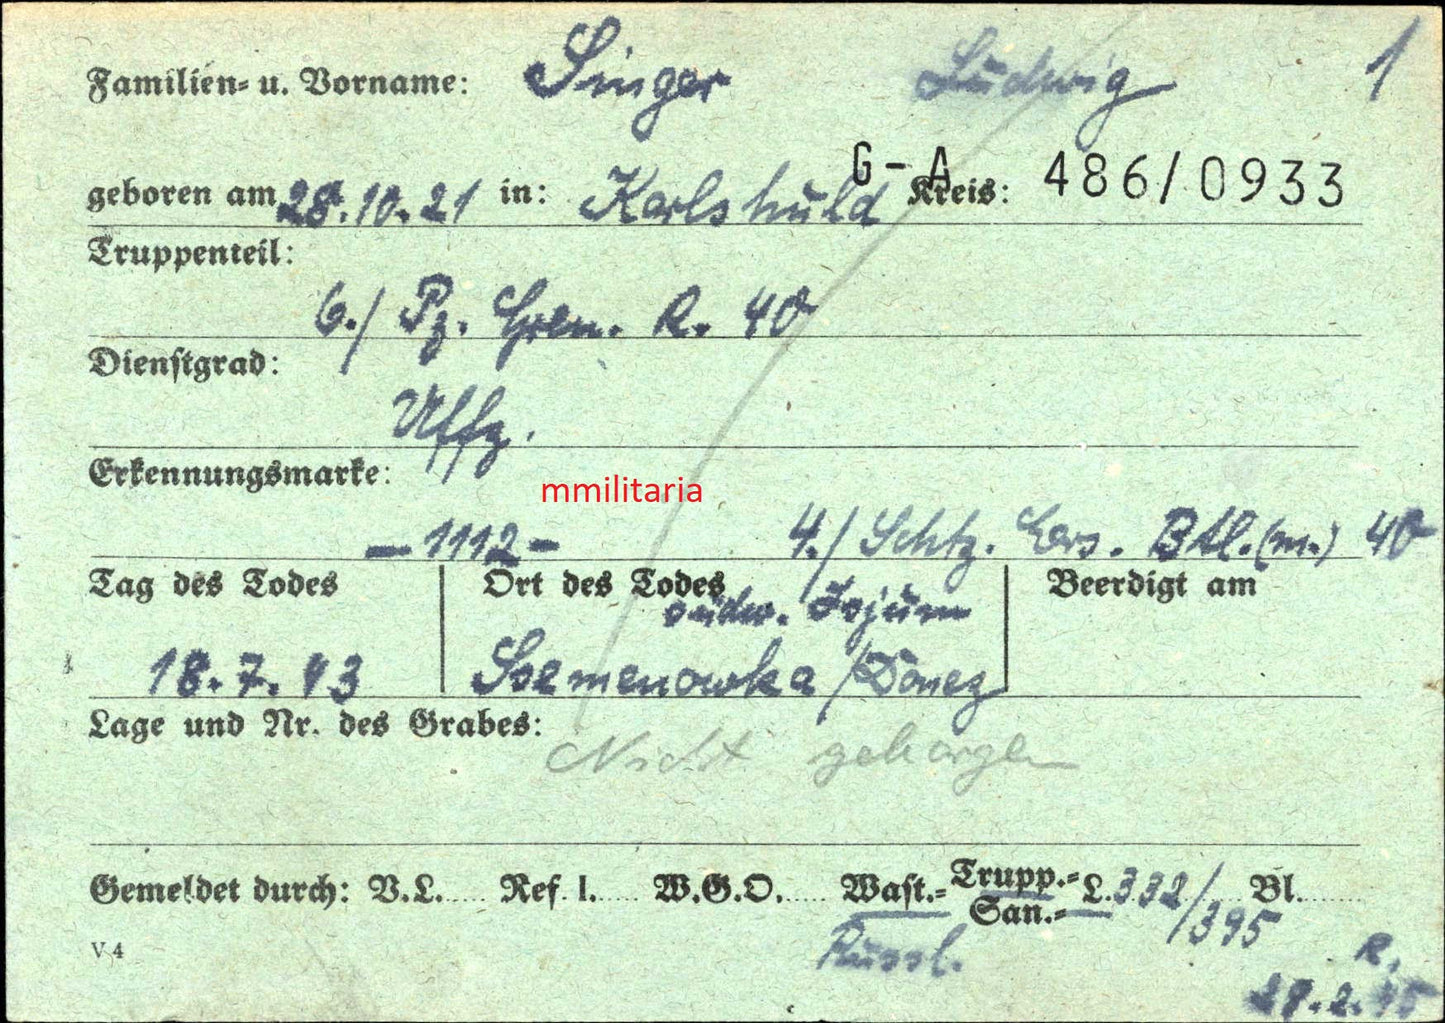 Familien- u. Vorname: Singer Ludwig 1
G-A 486/0933
geboren am 28.10.21 in: Karlshuld Kreis:
Truppenteil:
6./ Pz. Gren. R. 40
Dienstgrad:
Uffz.
Erkennungsmarke:
mmilitaria
-1112- 4./ Schtz. Ers. Btl. (m.) 40
Tag des Todes Ort des Todes Beerdigt am
südw. Isjum
18.7.43 Ssemenowka / Donez
Lage und Nr. des Grabes:
Nicht geborgen
Gemeldet durch: V.L. Ref. I. W.G.O. Wast.- Trupp.- San.- L. 332/395 Bl.
Russl.
V 4
R.
28.2.45